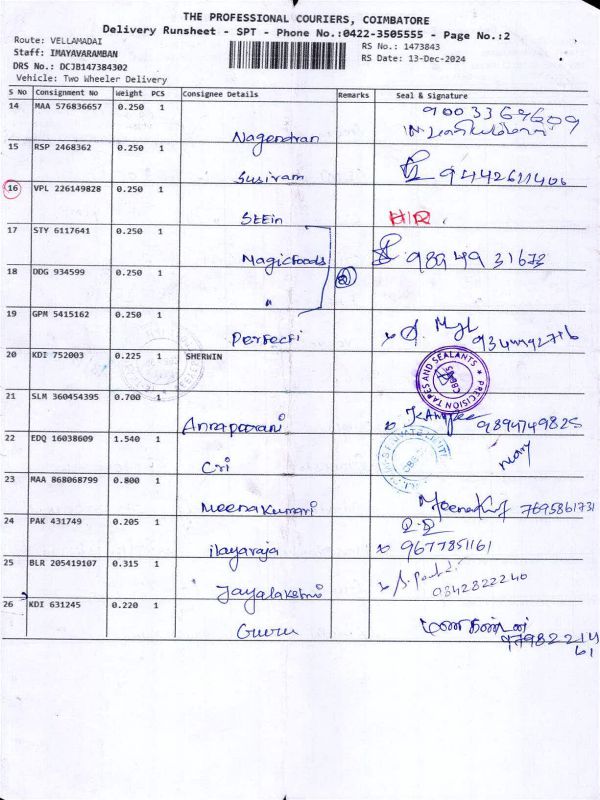 THE PROFESSIONAL COURIERS, COIMBATORE
Delivery Runsheet - SPT - Phone No.:0422-3505555 - Page No.:2
Route: VELLAMADAI
Staff: IMAYAVARAMBAN
RS No.: 1473843
DRS No.: DCJB147384302
RS Date: 13-Dec-2024
Vehicle: Two Wheeler Delivery
S No Consignment No Weight PCS Consignee Details Remarks Seal & Signature
14 MAA 576836657 0.250 1 Nagendran
15 RSP 2468362 0.250 1 Susiram 9442611406
16 VPL 226149828 0.250 1 Stein
17 STY 6117641 0.250 1 Magicfoods 98949 31673
18 DDG 934599 0.250 1 "
19 GPM 5415162 0.250 1 Perfect
20 KDI 752003 0.225 1 SHERWIN
PRECISION TAPES AND SEALANTS ★ CBE
21 SLM 360454395 0.700 1 Annapoorani 9894749825
22 EDQ 16038609 1.540 1 Cri
23 MAA 868068799 0.800 1 Meenakumari 7695861731
24 PAK 431749 0.205 1 ilayaraja 9677851161
25 BLR 205419107 0.315 1 Jayalakshmi 9842822240
26 KDI 631245 0.220 1 Guru மணிகண்டன்